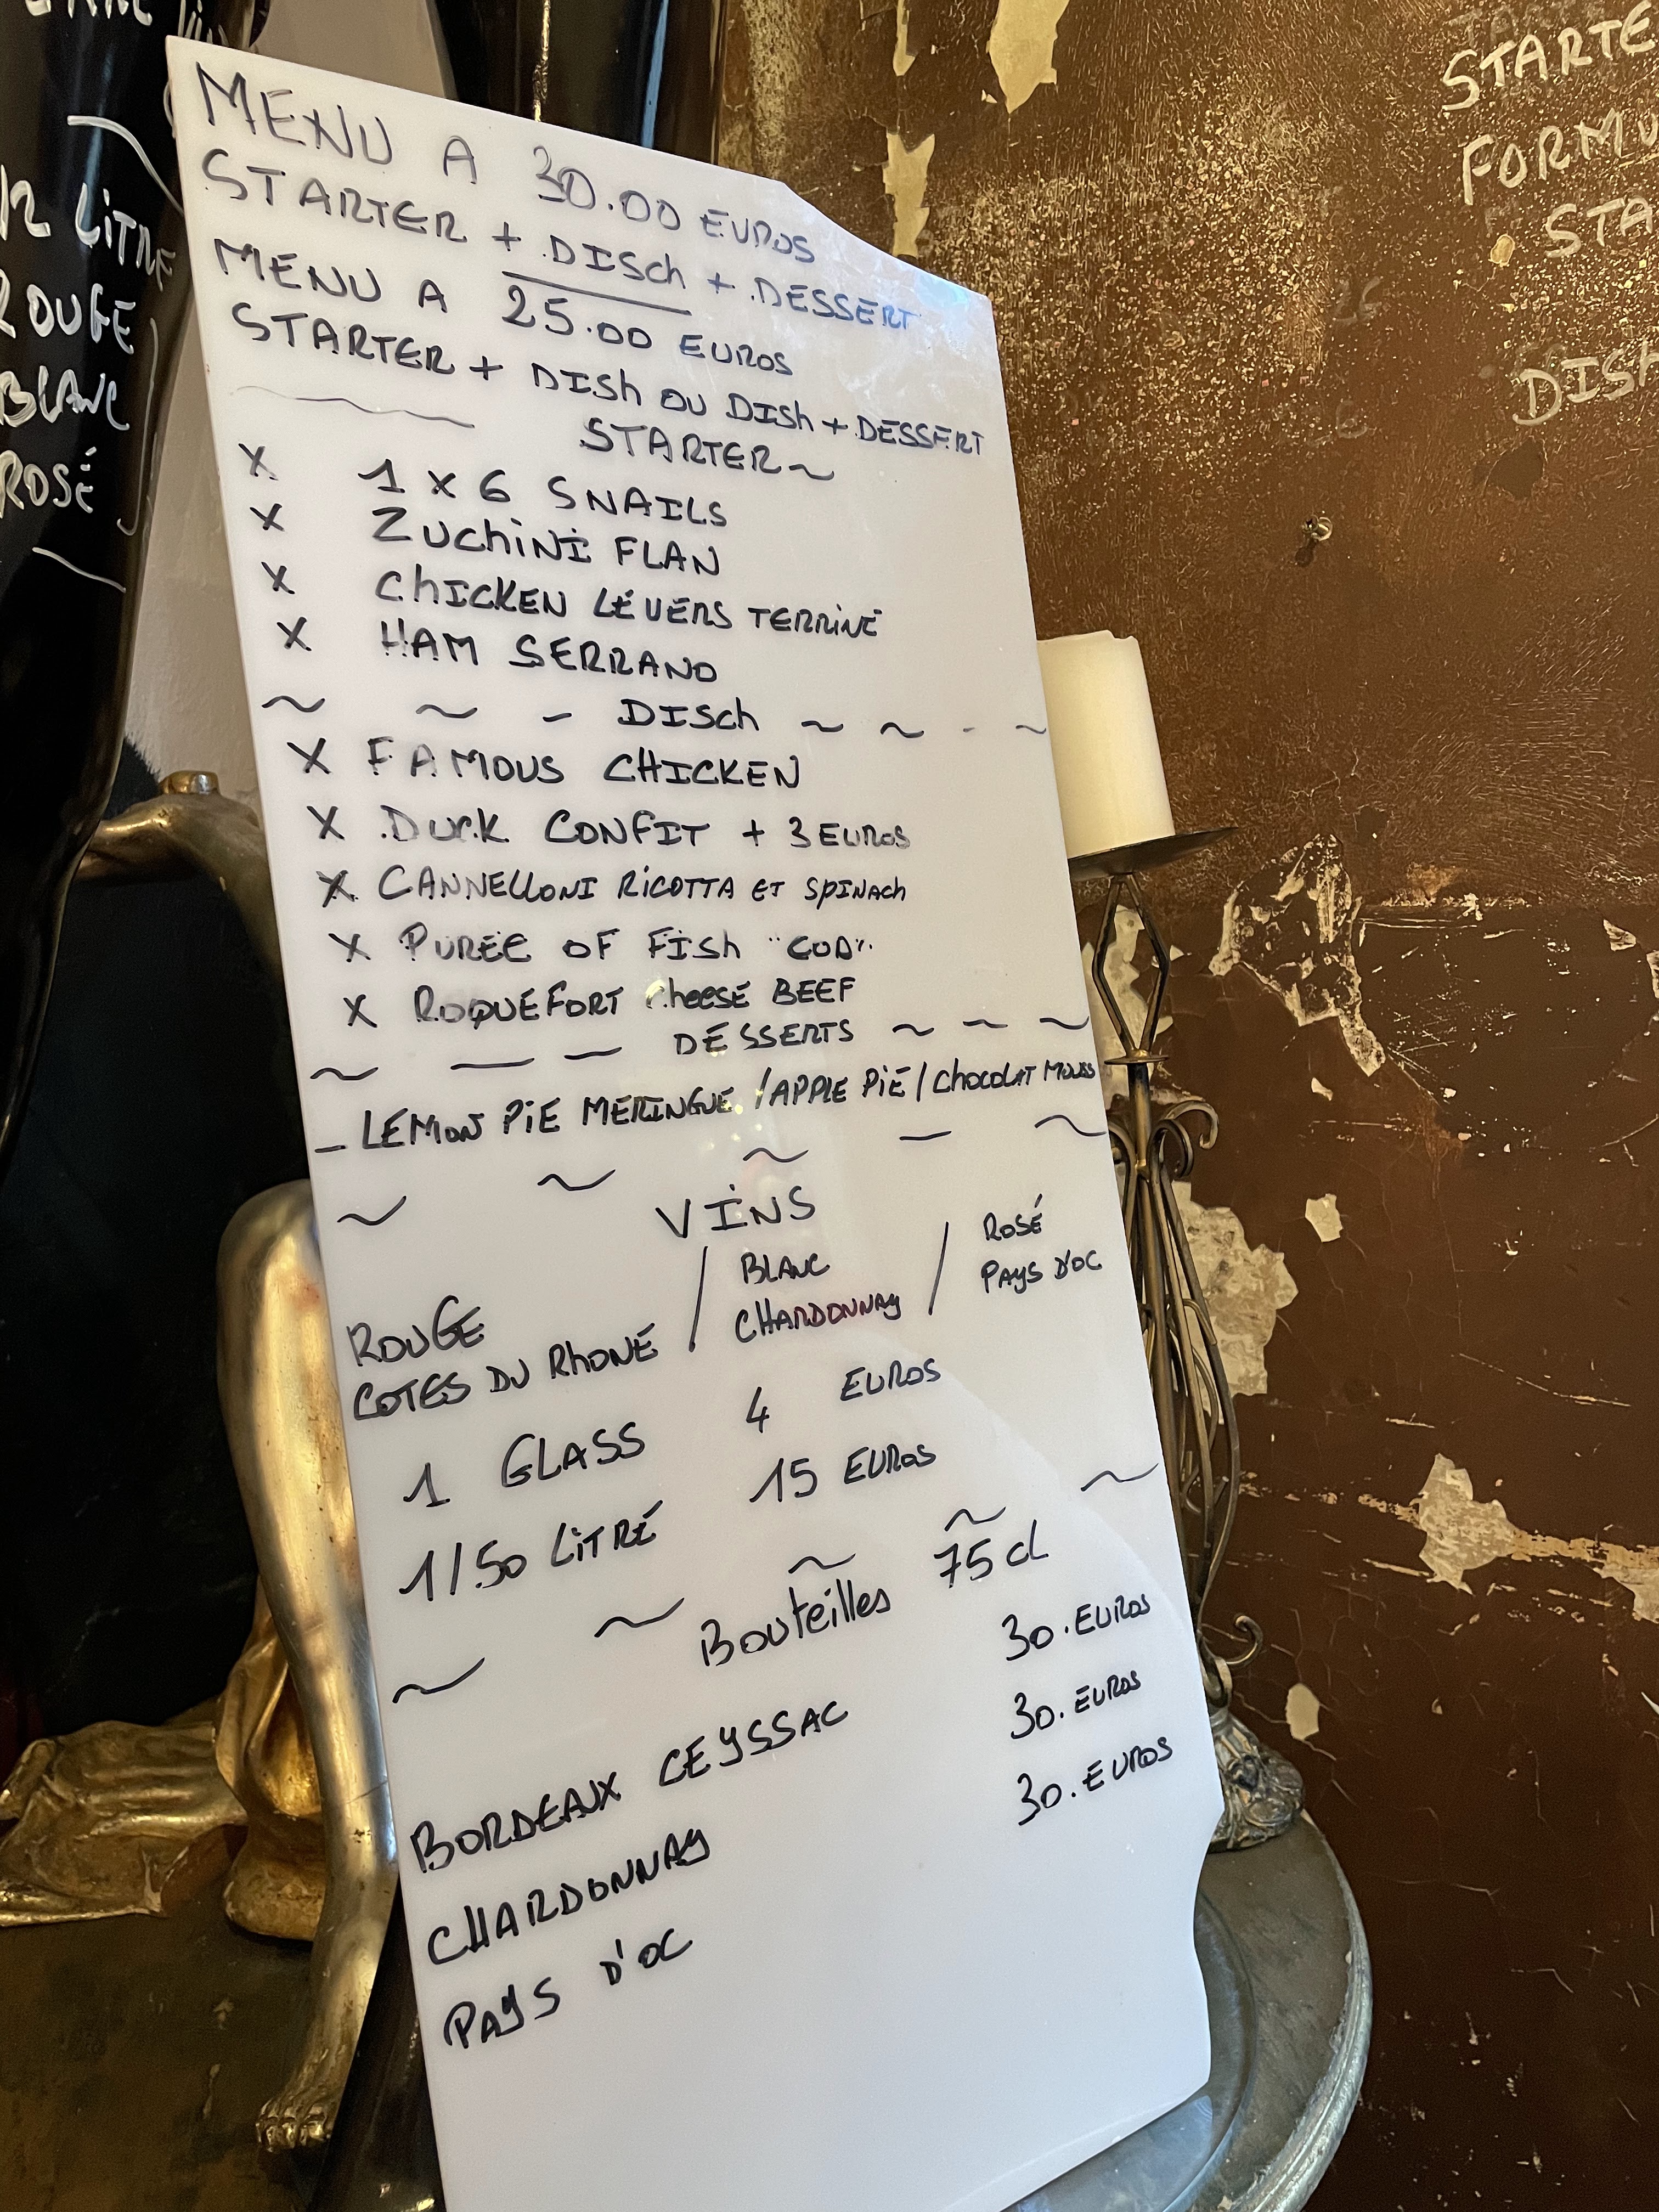 MENU A 30.00 EUROS
STARTER + DISCh + DESSERT
MENU A 25.00 EUROS
STARTER + DISh OU DISh + DESSERT
STARTER ~
X 1 X 6 SNAILS
X ZUChiNi FLAN
X ChICKEN LEVERS TERRiNE
X HAM SERRANO
~ ~ - DISCh ~ ~ - ~
X FAMOUS CHICKEN
X DUCK CONFIT + 3 EUROS
X CANNELLONI RiCOTTA ET SPINACh
X PURÉE OF FISh "COD"
X ROQUEFORT CheESE BEEF
~ — — DESSERTS ~ ~ ~
- LEMON PiE MERINGUE / APPLE PiE / ChOCOLAT MOUSS
~ ~ ~ — ~
ViNS
ROUGE / BLANC / ROSÉ
COTES DU RhONE / CHARDONNAY / PAYS D'OC
1 GLASS 4 EUROS
1/50 LiTRE 15 EUROS
~ ~ ~ ~ ~
Bouteilles 75 cl
BORDEAUX CEYSSAC 30. EUROS
CHARDONNAY 30. EUROS
PAYS D'OC 30. EUROS
/2 LiTRE
ROUGE
BLANC
ROSÉ
STARTE
FORMU
STA
DISH